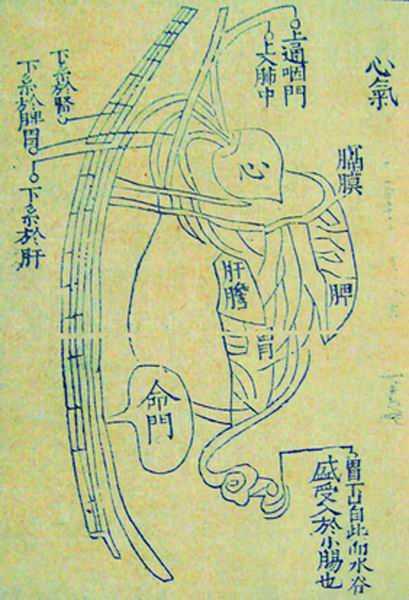 心氣
上通咽門
上入肺中
下系於腎
下系於脾胃
下系於肝
心
膈膜
肝膽
脾
胃
命門
胃下口自此而水谷
盛受入於小腸也